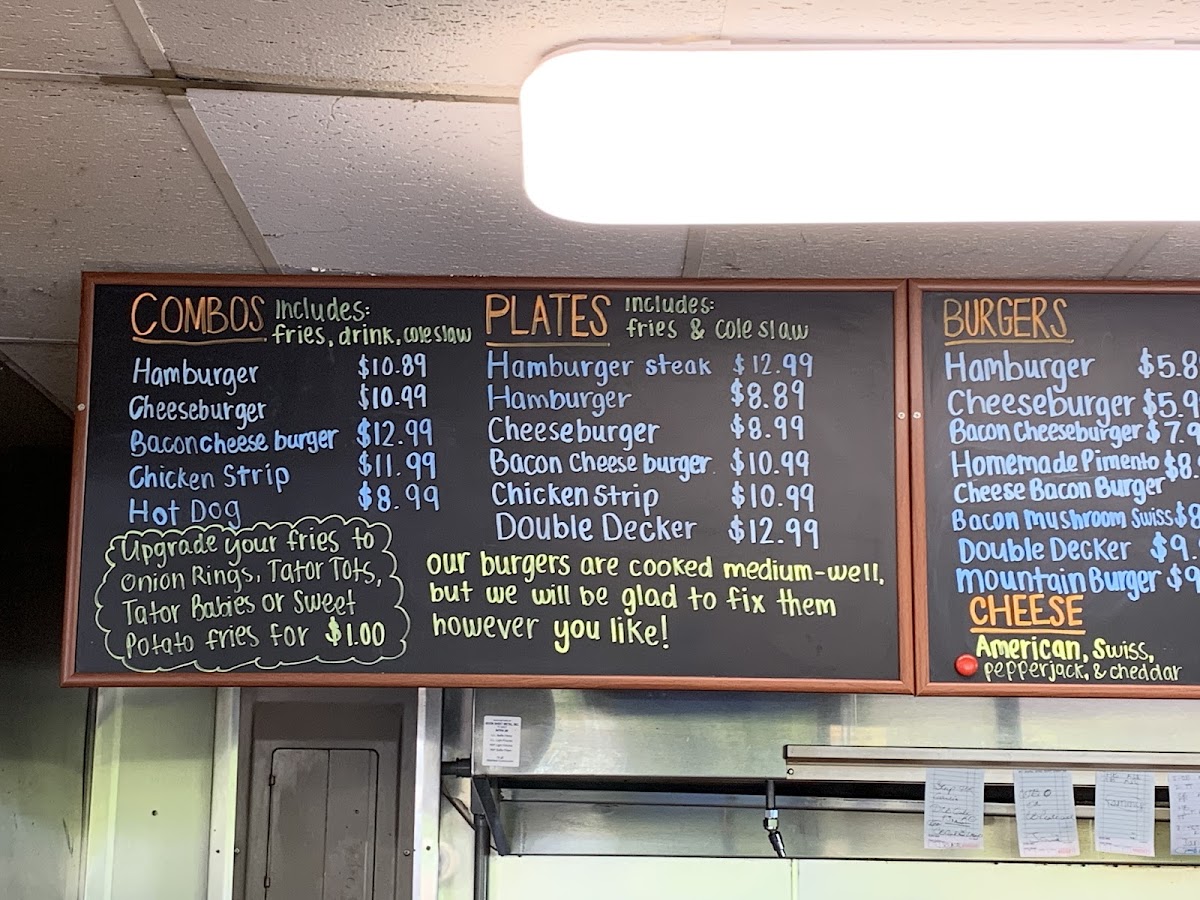 COMBOS Includes:
fries, drink, coleslaw
Hamburger $10.89
Cheeseburger $10.99
Bacon cheese burger $12.99
Chicken Strip $11.99
Hot Dog $8.99
Upgrade your fries to
Onion Rings, Tator Tots,
Tator Babies or Sweet
Potato fries for $1.00
PLATES Includes:
fries & cole slaw
Hamburger steak $12.99
Hamburger $8.89
Cheeseburger $8.99
Bacon Cheese burger $10.99
Chicken Strip $10.99
Double Decker $12.99
our burgers are cooked medium-well,
but we will be glad to fix them
however you like!
BURGERS
Hamburger $5.8
Cheeseburger $5.9
Bacon Cheeseburger $7.9
Homemade Pimento $8.
Cheese Bacon Burger
Bacon Mushroom Swiss $
Double Decker $9.
Mountain Burger $9
CHEESE
American, Swiss,
pepperjack, & cheddar